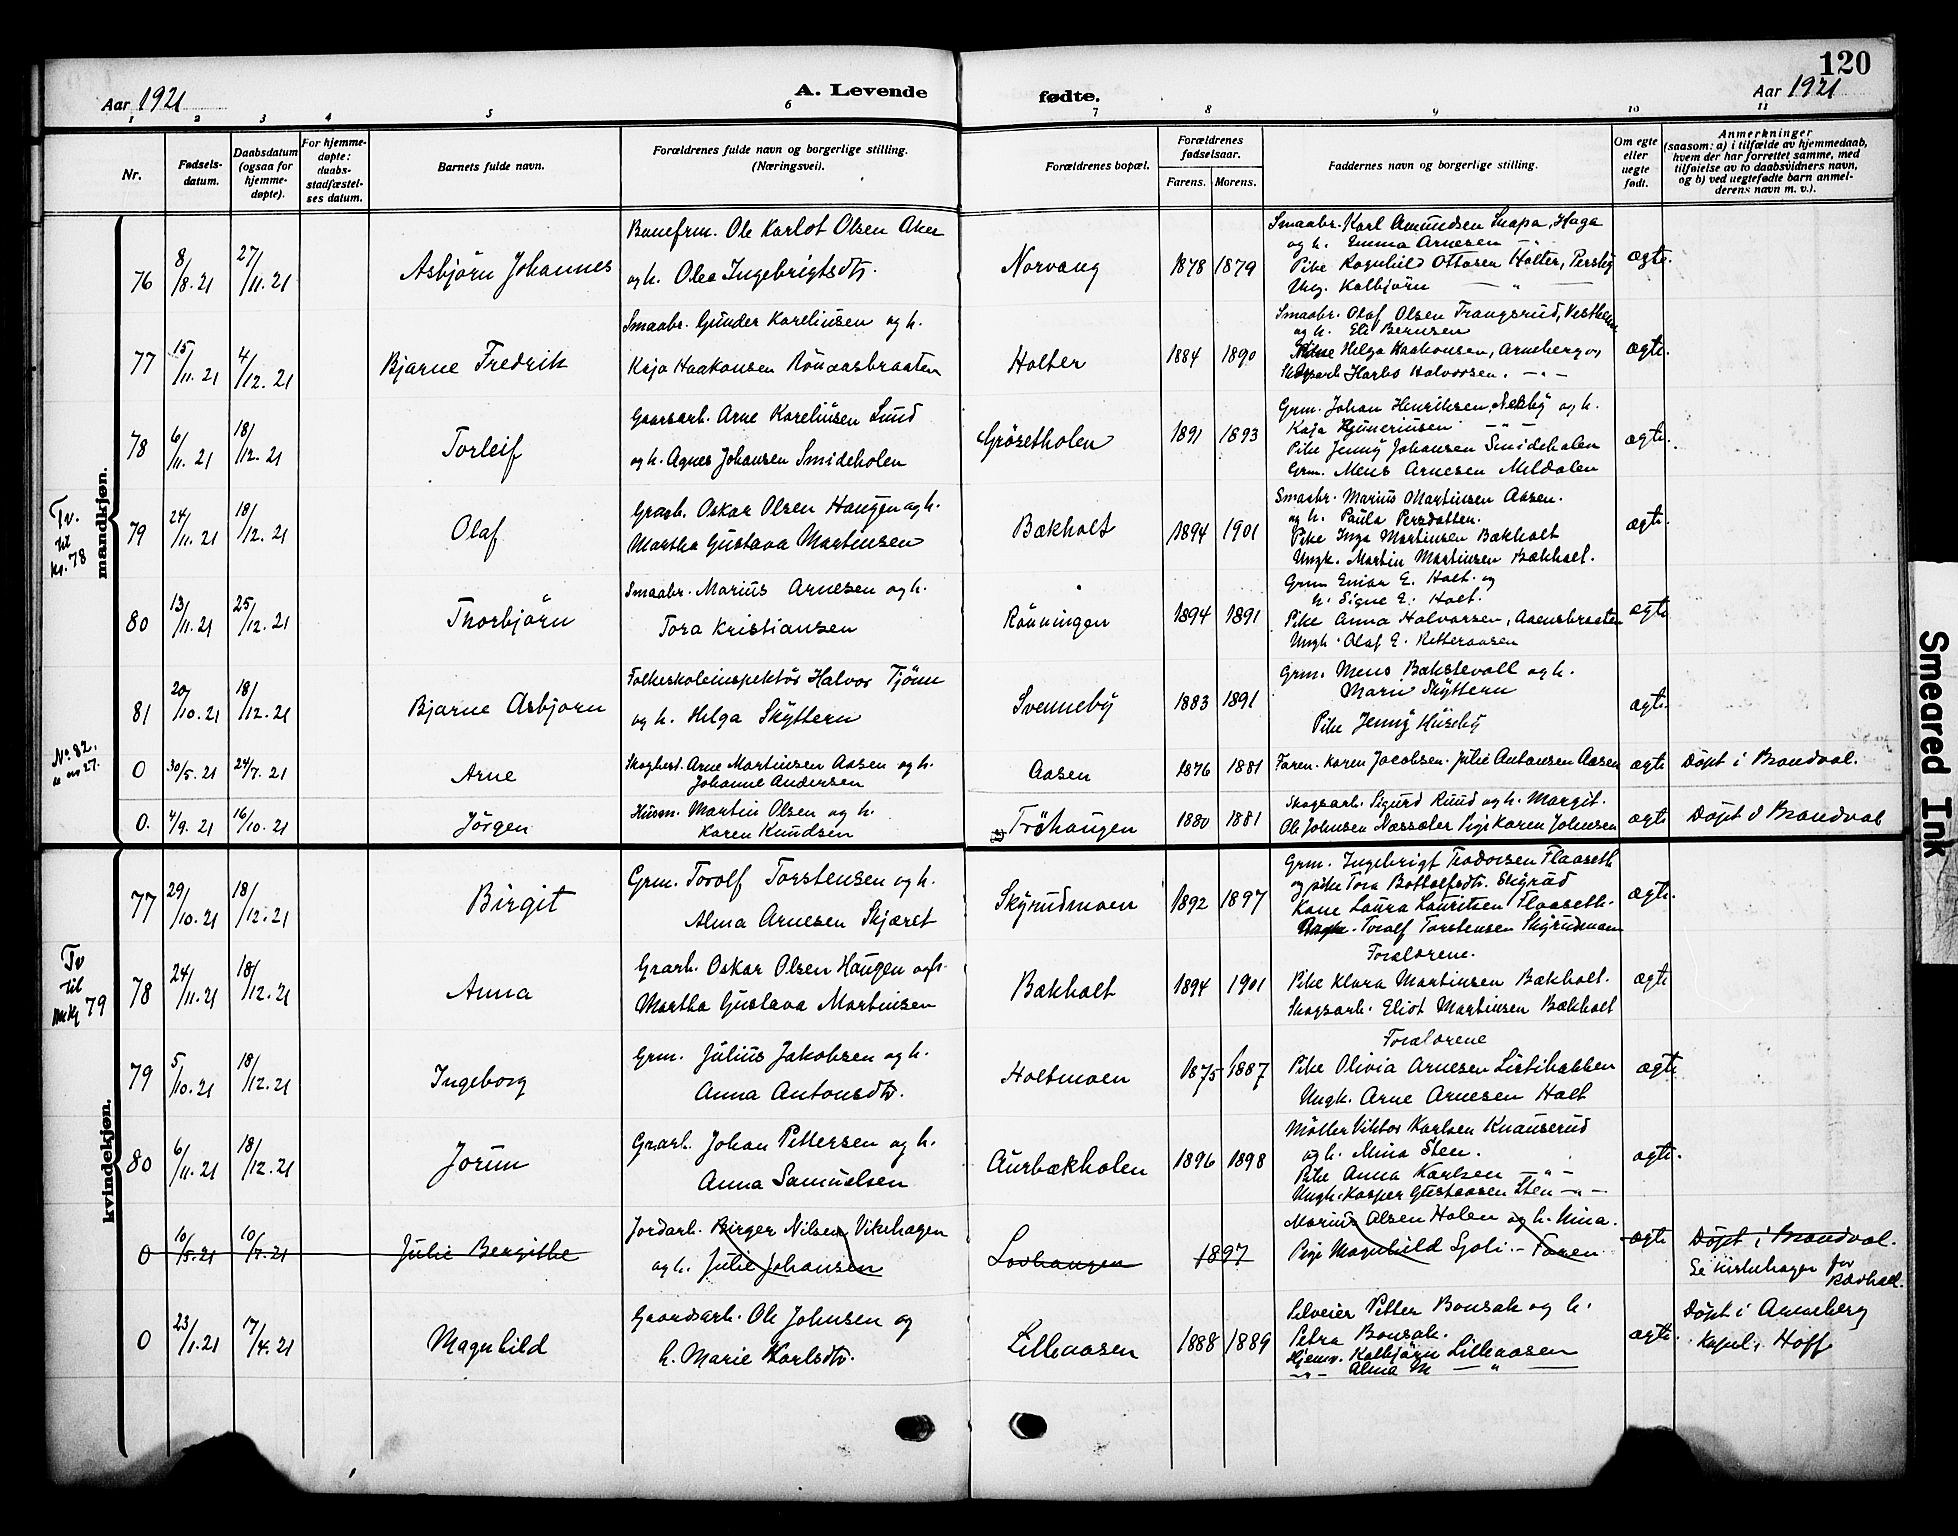 120
Aar 1921
A. Levende
fødte.
Aar 1921
1 2 3 4 5 6 7 8 9 10 11
Nr.
Fødsels-
datum.
Daabsdatum
(ogsaa for
hjemme-
døpte).
For hjemme-
døpte:
daabs-
stadfæstel-
ses datum.
Barnets fulde navn.
Forældrenes fulde navn og borgerlige stilling.
(Næringsvei).
Forældrenes bopæl.
Forældrenes
fødselsaar.
Farens. Morens.
Faddernes navn og borgerlige stilling.
Om egte
eller
uegte
født.
Anmerkninger
(saasom: a) i tilfælde av hjemmedaab,
hvem der har forrettet samme, med
tilføielse av to daabsvidners navn,
og b) ved uegtefødte barn anmel-
derens navn m. v.).
mandkjøn.
76 8/8.21 27/11.21 Asbjörn Johannes
Banefrm. Ole Karlot Olsen Aker
og h. Olea Ingebrigtsdtr.
Norvang 1878 1879
Smaabr. Karl Amundsen Snapa, Haga
og h. Emma Arnesen — " —
Pike Ragnhild Ottosen Holter, Persby
Ung. Kolbjörn — " —
ægte.
77 15/11.21 4/12.21 Bjarne Fredrik
Smaabr. Gunder Kareliusen og h.
Kaja Haakonsen Rönaasbraaten
Holter 1884 1890
Smaabr. Olaf Olsen Frangsrud, Vestheim
og h. Eli Bernsen
Helga Haakonsen, Arneberg og
Harbo Halvorsen. — " —
ægte.
78 6/11.21 18/12.21 Torleif
Gaardsarb. Arne Kareliusen Lund
og h. Agnes Johansen Smideholen
Grösetholen 1891 1893
Grm. Johan Henriksen, Nekby og h.
Kaja — " —
Pike Jenny Johansen Smideholen
Grm. Mens Arnesen Meldalen
ægte.
Tv.
til
kv. 78
79 24/11.21 18/12.21 Olaf
Grarb. Oskar Olsen Haugen og h.
Martha Gustava Martinsen
Bækholt 1894 1901
Smaabr. Marius Martinsen Aasen.
og h. Paula Persdatter.
Pike Inga Martinsen Bækholt
Ungk. Martin Martinsen Bækholt.
ægte.
80 13/11.21 25/12.21 Thorbjörn
Smaabr. Marius Arnesen og h.
Tora Kristiansen
Rönningen 1894 1891
Grm Einar E. Holt og
h. Signe E. Holt.
Pike Anna Halvorsen, Aasensbraaten
Ungk. Olaf E. Ketteraasen
ægte
81 20/10.21 18/12.21 Bjarne Asbjørn
Folkeskoleinspektör Halvor Tjönn
og h. Helga Skyttern
Svenneby 1883 1891
Grm. Mens Bækstevold og h.
Marie Skyttern
Pike Jenny Huseby
ægte.
No. 82.
0 30/5.21 24/7.21 Arne
Skogbest. Arne Martinsen Aasen og h.
Johanne Andersen
Aasen 1876 1881
Faren. Karen Jacobsen. Julie Antonsen Aasen
ægte Döpt i Brandval.
0. 4/9.21 16/10.21 Jörgen
Husm. Martin Olsen og h.
Karen Knudsen
Tröhaugen 1880 1881
Skogsarb. Sigurd Ruud og h. Margit.
Ole Johnsen Næssæter Pige Karen Johnsen
ægte Döpt i Brandval
kvindekjøn.
77 29/10.21 18/12.21 Birgit
Grm. Torolf Torstensen og h.
Alma Arnesen Skjæret
Skyrudmoen 1892 1897
Grm. Ingebrigt Teodorsen Flaaseth
og pike Tora Bottolfsdtr. Skyrud
Kone Laura Lauritsen Flaaseth.
Torolf Torstensen Skyrudmoen
ægte.
Tv
til
mkj 79
78 24/11.21 18/12.21 Anna
Grarb. Oskar Olsen Haugen og h.
Martha Gustava Martinsen
Bækholt 1894 1901
Forældrene.
Pike Klara Martinsen Bækholt.
Skogsarb. Eliot Martinsen Bækholt
ægte
79 5/10.21 18/12.21 Ingeborg
Grm. Julius Jakobsen og h.
Anna Antonsdtr.
Holtmoen 1875 1887
Forældrene
Pike Olivia Arnesen Listibakken
Ungk. Arne Arnesen Holt
ægte
80 6/11.21 18/12.21 Jorun
Grarb. Johan Pettersen og h.
Anna Samuelsen
Aurbækholen 1896 1898
Möller Viktor Karlsen Knauserud
og h. Mina Sten.
Pike Anna Karlsen — " —
Ungk. Kasper Gustavsen Sten — " —
ægte.
0 10/5.21 10/7.21 Julie Bergithe
Jordarb. Birger Nilsen Vikehagen
og h. Julie Johansen
Lovhaugen 1897
Marius Olsen Holen og h. Nina.
Pige Magnhild Sjoli – Faren
ægte Döpt i Brandval.
Se kirkebogen for
0 23/1.21 17/4.21 Magnhild
Gaardsarb. Ole Johnsen og
h. Marie Karlsdtr.
Lilleaasen 1888 1889
Petter Bonsak og h.
Petra Bonsak.
Hjemv. Kolbjörn Lilleaasen
— " — Alma M — " —
ægte. Döpt i Arneberg
kapel, Hoff
Smeared Ink